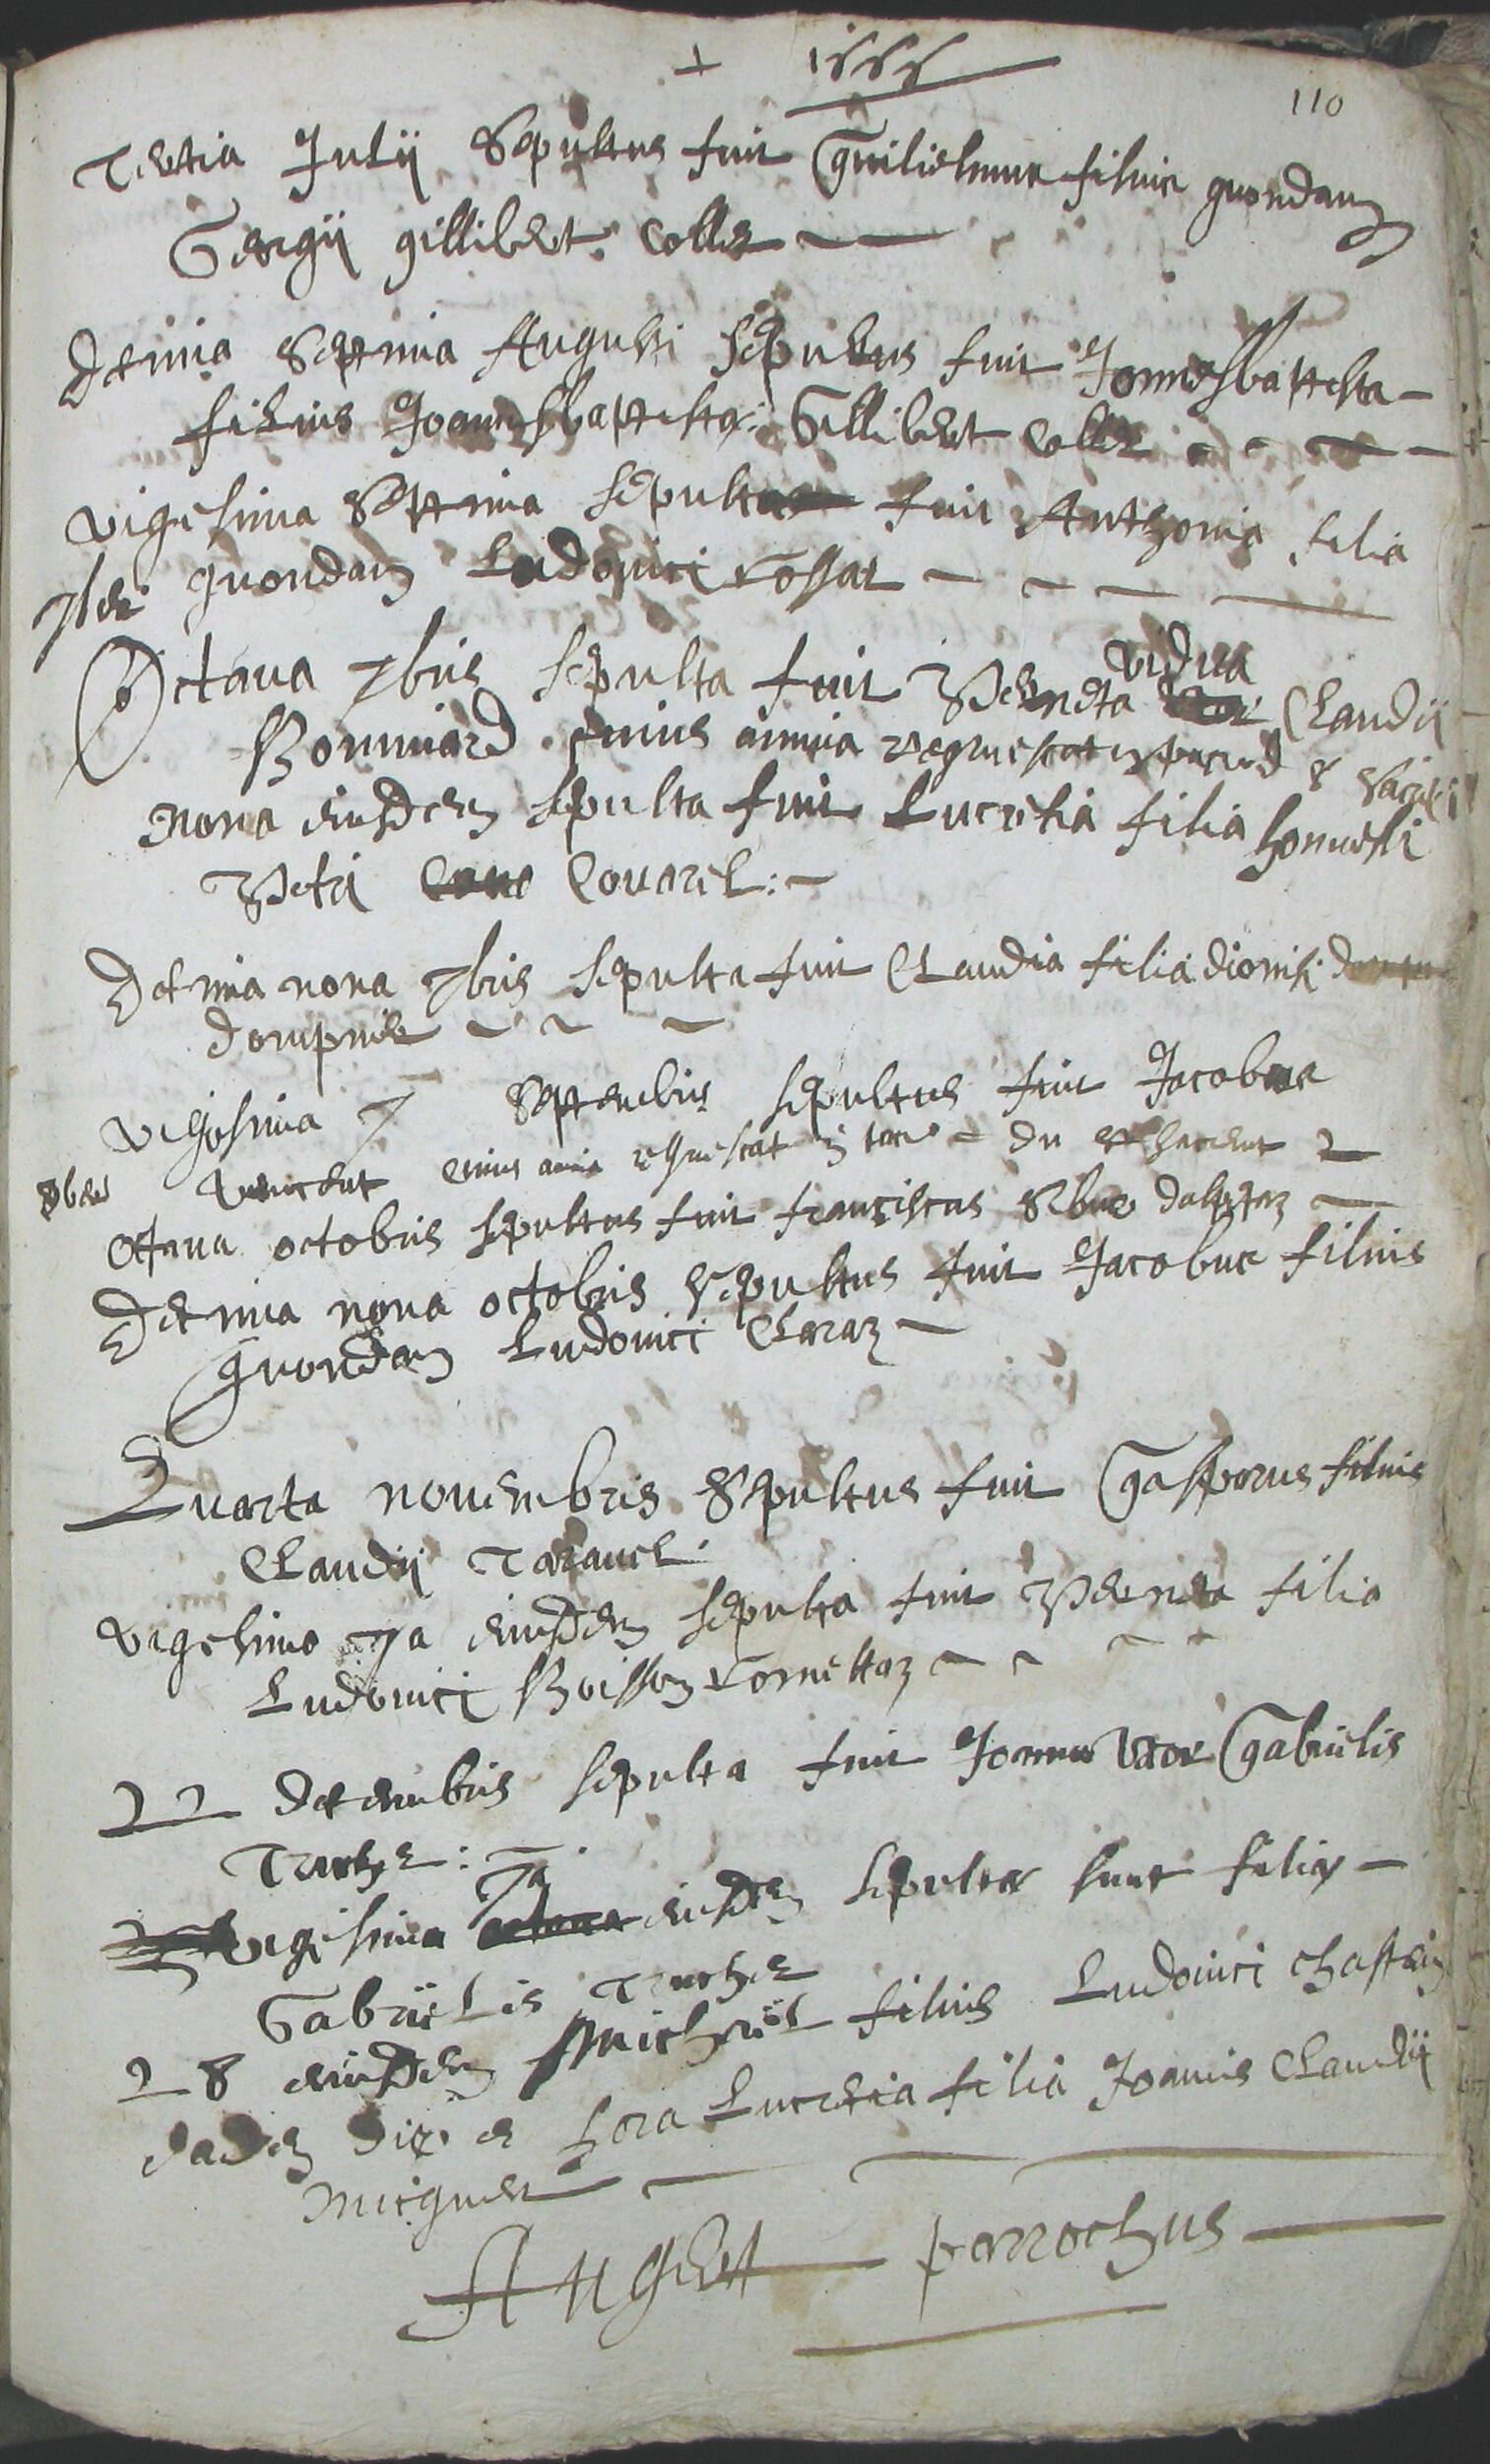 + 1666
110
Tertia Julij Sepultus fuit Guilielmus filius quondam
Georgij gillibert Collet
Decima Septima Augusti sepultus fuit Joannesbaptista
filius Joannisbaptistæ Gillibert Collet
Vigesima Septima sepulta fuit Anthonia filia
7ber quondam Ludovici Cossat
vidua
Octava 7bris sepulta fuit Perneta Claudij
Bonniard cuius anima requiescat in pace
Nona eiusdem sepulta fuit Lucretia filia honnesti
Petri Covarel
Decima nona 7bris sepulta fuit Claudia filia dionisi
dompnie
Vigesima 7 Septembris sepultus fuit Jacobus
8ber Vincent cuius anima requiescat in pace
Octava octobris sepultus fuit franciscus
Decima nona octobris sepultus fuit Jacobus filius
quondam Ludovici Claraz
Quarta novembris Sepultus fuit Gasparus filius
Claudij Taravel
Vigesima 7a eiusdem sepulta fuit Perneta filia
Ludovici Boisson Cornettaz
22 decembris sepulta fuit Joanna Uxor Gabrielis
Truchet
7a
Vigesima eiusdem sepultæ sunt filiæ
Gabrielis Truchet
28 eiusdem Michael filius Ludovici
eadem die et hora Lucretia filia Joannis Claudij
Miegnet
Auget parrochus